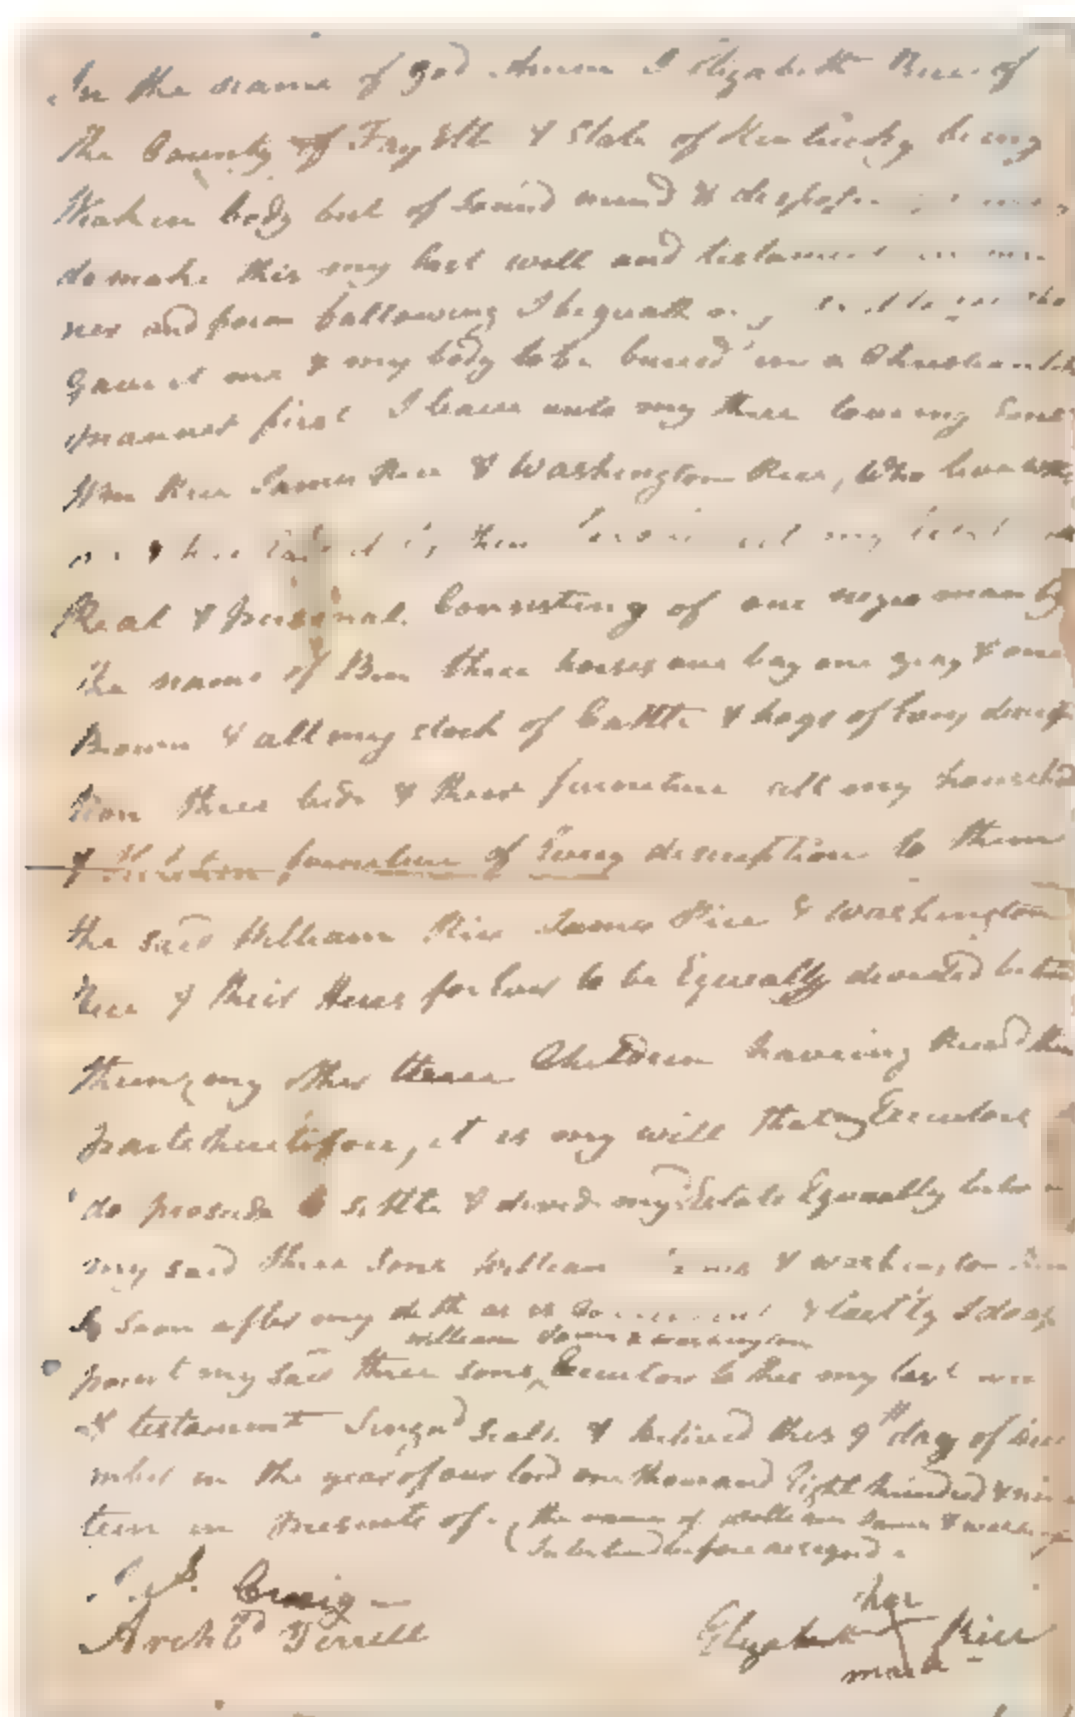 In the name of god Amen I Elizabeth Rice of
the County of Fayette & State of Kentucky being
Weak in body but of Sound mind &
do make this my last will and testament in
ner and form following I bequath my
gave it me & my body to be buried in a
manner first I leave unto my three loveing Sons
Wm Rice James Rice & Washington Rice, Who live with
me & my
Real & personal. Consisting of one negro man by
the name of Ben three horses one bay one gray & one
Brown & all my stock of Cattle & hogs of Every descrip
tion three beds & there furneture all my household
& Kitchen furneture of Every description to them
the said William Rice James Rice & Washington
Rice & their Heirs for Ever to be Equeally devided between
them, my other three Children haveing Receid their
parts heretofore, it is my will that my Executors
do proseede to settle & devid my Estate Equeally
my said three Sons William James & Washington
as Soon after my deth as is & lastly I do ap
William James & Washington
point my said three sons, Executors to this my last
& testament Singnd Seald & this 9th day of Dece
mber in the year of our lord one thousand Eight hundred & nine
teen in Presents of. (the name of William James & Washington
Interlined before assignd.
J. Craig
Archbd Terrell
her
Elizabeth X Rice
mark